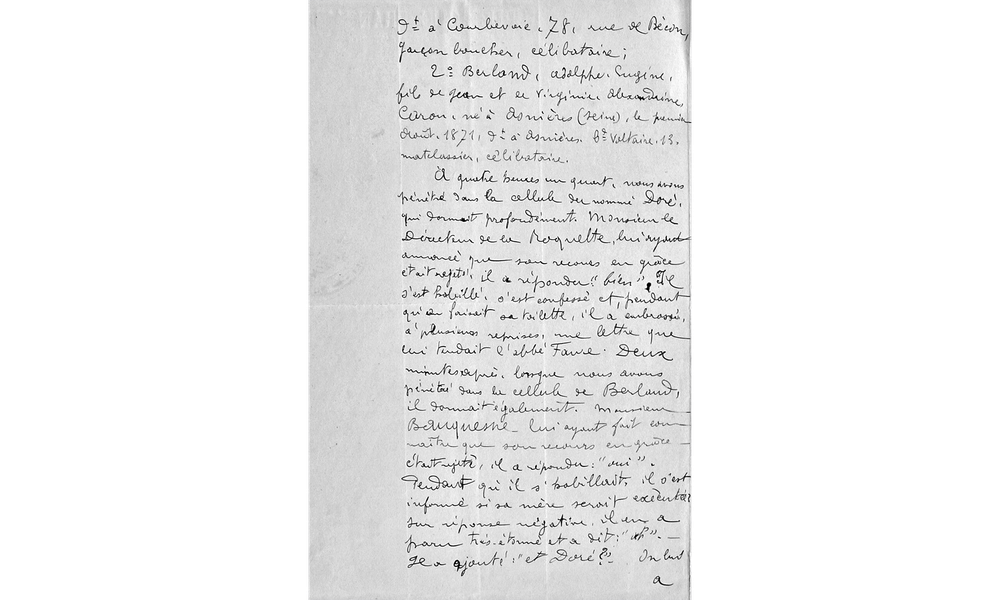 dt à Courbevoie, 78, rue de Bécon,
garçon boucher, célibataire;
2º Berland, adolphe. Eugène,
fils de Jean et de Virginie. Alexandrine
Caron, né à Asnières (Seine), le premier
Août. 1871, dt à Asnières. Bd Voltaire. 13.
matelassier, célibataire.
À quatre heures un quart, nous avons
pénétré dans la cellule du nommé Doré,
qui dormait profondément. Monsieur le
Directeur de la Roquette, lui ayant
annoncé que son recours en grâce
était rejeté, il a répondu: "bien". Il
s'est habillé, s'est confessé et, pendant
qu'on faisait sa toilette, il a embrassé,
à plusieurs reprises, une lettre que
lui tendait l'abbé Faure. Deux
minutes après, lorsque nous avons
pénétré dans la cellule de Berland,
il dormait également. Monsieur
Beauquesne lui ayant fait con-
naître que son recours en grâce
était rejeté, il a répondu: "oui".
Pendant qu'il s'habillait, il s'est
informé si sa mère serait exécutée
sur réponse négative, il en a
paru très-étonné et a dit: "ah". —
Il a ajouté: "et Doré?" On lui
a